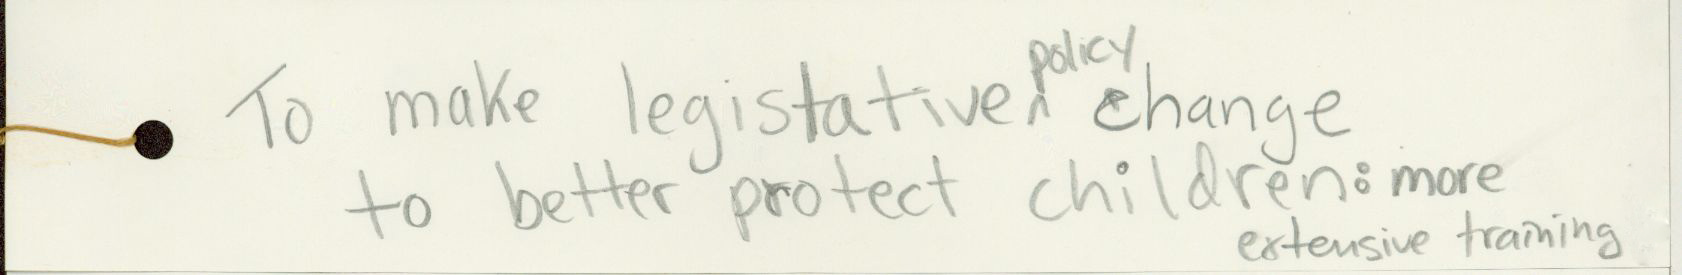 To make legistative policy change
to better protect children: more
extensive training